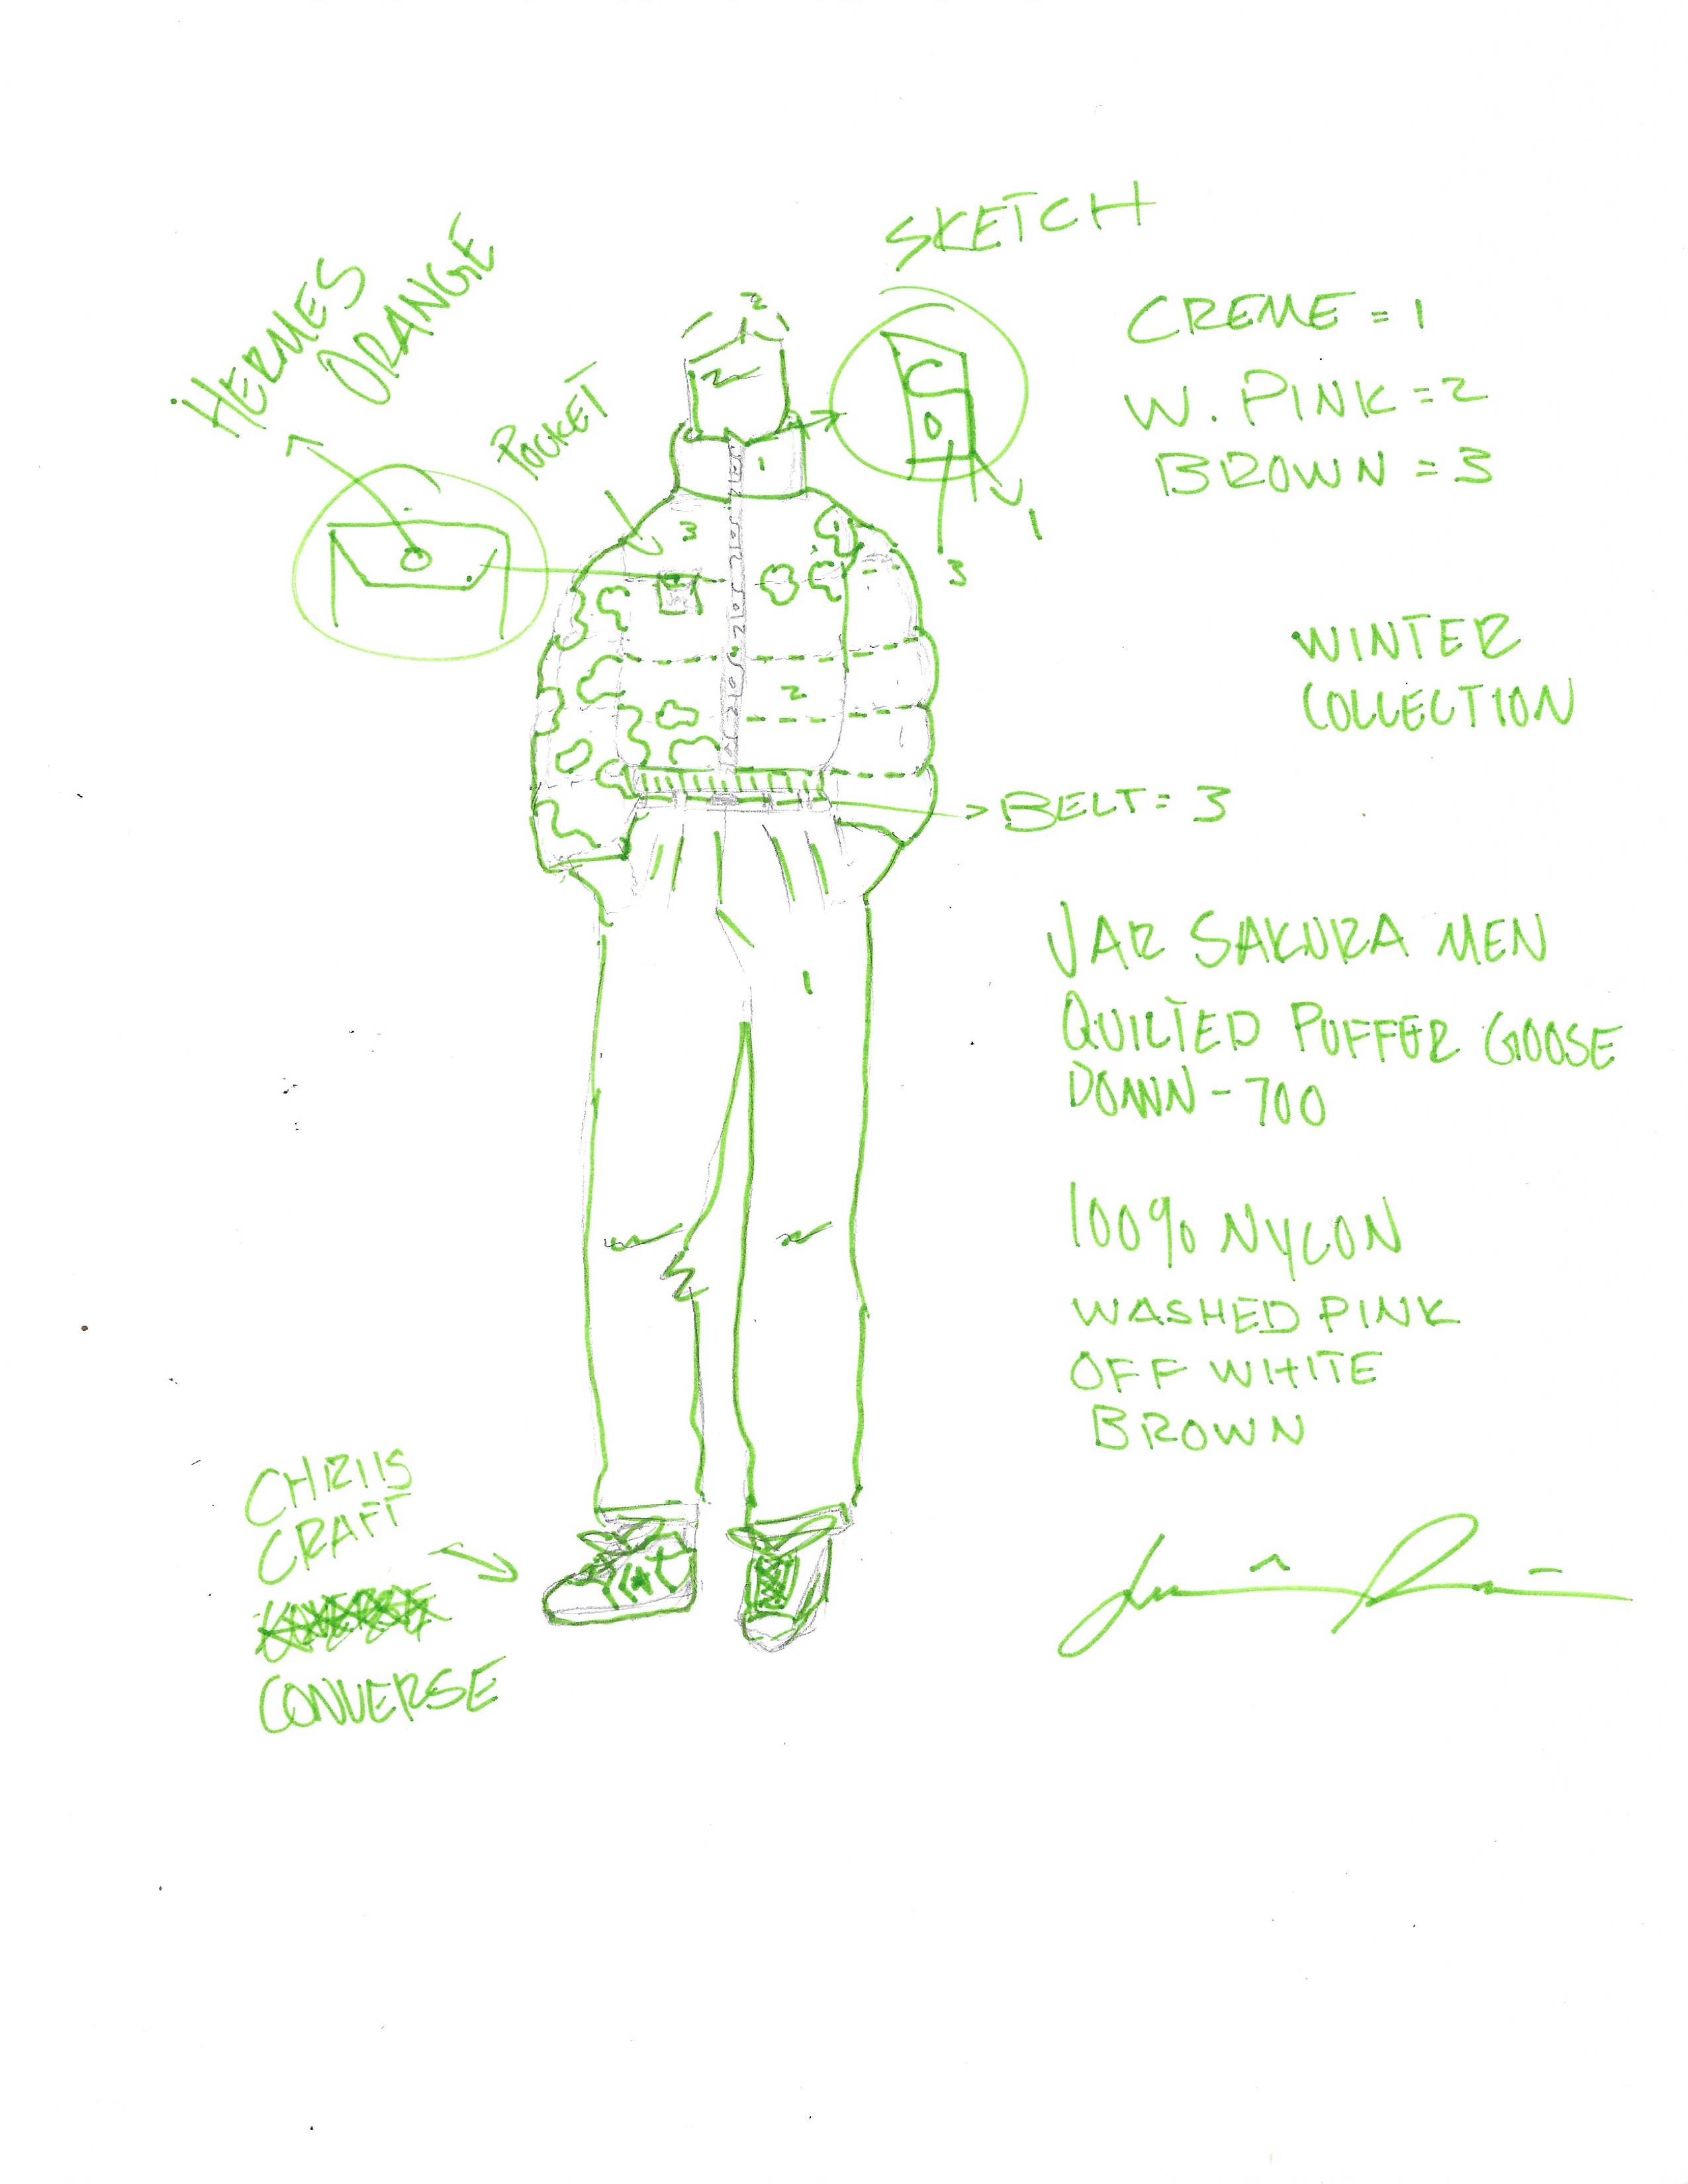 SKETCH
HERMES
ORANGE
POCKET
CREME = 1
W. PINK = 2
BROWN = 3
2
2
C
O
1
3
1
3
WINTER
COLLECTION
2
1
BELT = 3
JAR SAKURA MEN
QUILTED PUFFER GOOSE
DOWN - 700
1
100% NYLON
WASHED PINK
OFF WHITE
BROWN
CHRIIS
CRAFT
CONVERSE